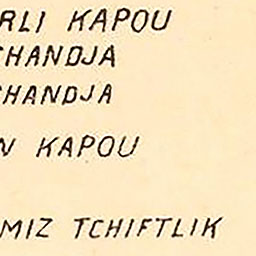 RLI KAPOU
CHANDJA
CHANDJA
N KAPOU
MIZ TCHIFTLIK